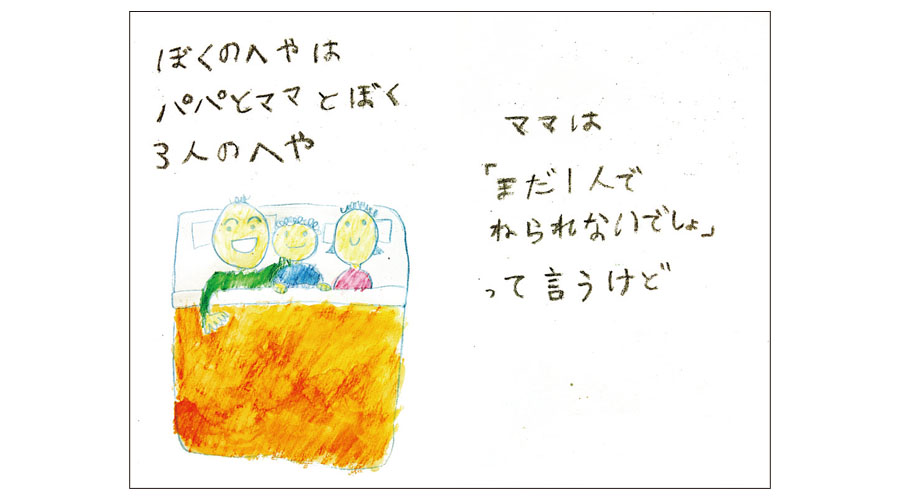 ぼくのへやは
パパとママとぼく
3人のへや
ママは
「まだ1人で
ねられないでしょ」
って言うけど